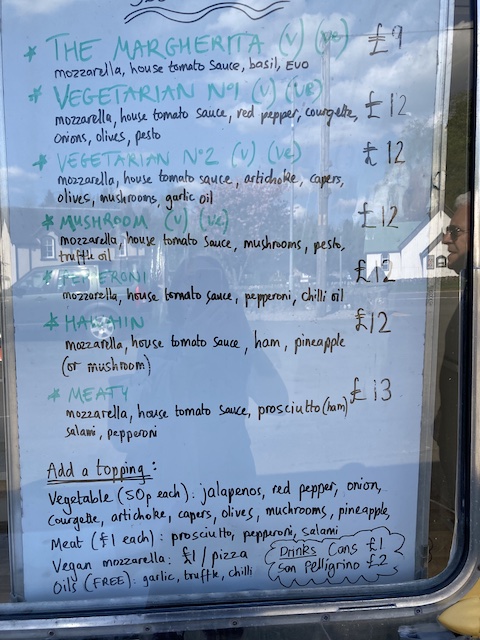 * THE MARGHERITA (V) (VE) £9
mozzarella, house tomato sauce, basil, EVO
* VEGETARIAN Nº1 (V) (VE) £12
mozzarella, house tomato sauce, red pepper, courgette,
onions, olives, pesto
* VEGETARIAN Nº2 (V) (VE) £12
mozzarella, house tomato sauce, artichoke, capers,
olives, mushrooms, garlic oil
* MUSHROOM (V) (VE) £12
mozzarella, house tomato sauce, mushrooms, pesto,
truffle oil
* PEPPERONI £12
mozzarella, house tomato sauce, pepperoni, chilli oil
* £12
mozzarella, house tomato sauce, ham, pineapple
(or mushroom)
* MEATY £13
mozzarella, house tomato sauce, prosciutto (ham)
salami, pepperoni
Add a topping:
Vegetable (50p each): jalapenos, red pepper, onion,
courgette, artichoke, capers, olives, mushrooms, pineapple,
Meat (£1 each): prosciutto, pepperoni, salami
Vegan mozzarella: £1/pizza
Oils (FREE): garlic, truffle, chilli
Drinks Cans £1
San Pelligrino £2